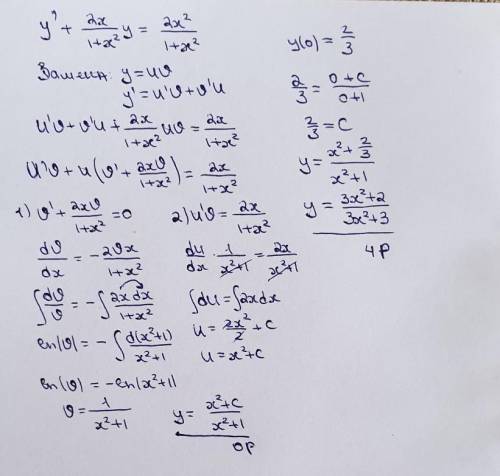 y' + 2x/(1+x²) y = 2x²/(1+x²)
Замена: y = uϑ
y' = u'ϑ + ϑ'u
u'ϑ + ϑ'u + 2x/(1+x²) uϑ = 2x/(1+x²)
u'ϑ + u(ϑ' + 2xϑ/(1+x²)) = 2x/(1+x²)
1) ϑ' + 2xϑ/(1+x²) = 0
dϑ/dx = -2ϑx/(1+x²)
∫dϑ/ϑ = -∫2xdx/(1+x²)
ln|ϑ| = -∫d(x²+1)/(x²+1)
ln|ϑ| = -ln|x²+1|
ϑ = 1/(x²+1)
2) u'ϑ = 2x/(1+x²)
du/dx · 1/(x²+1) = 2x/(x²+1)
∫du = ∫2xdx
u = 2x²/2 + C
u = x²+C
y = (x²+C)/(x²+1)
OP
y(0) = 2/3
2/3 = (0+C)/(0+1)
2/3 = C
y = (x²+2/3)/(x²+1)
y = (3x²+2)/(3x²+3)
ЧР